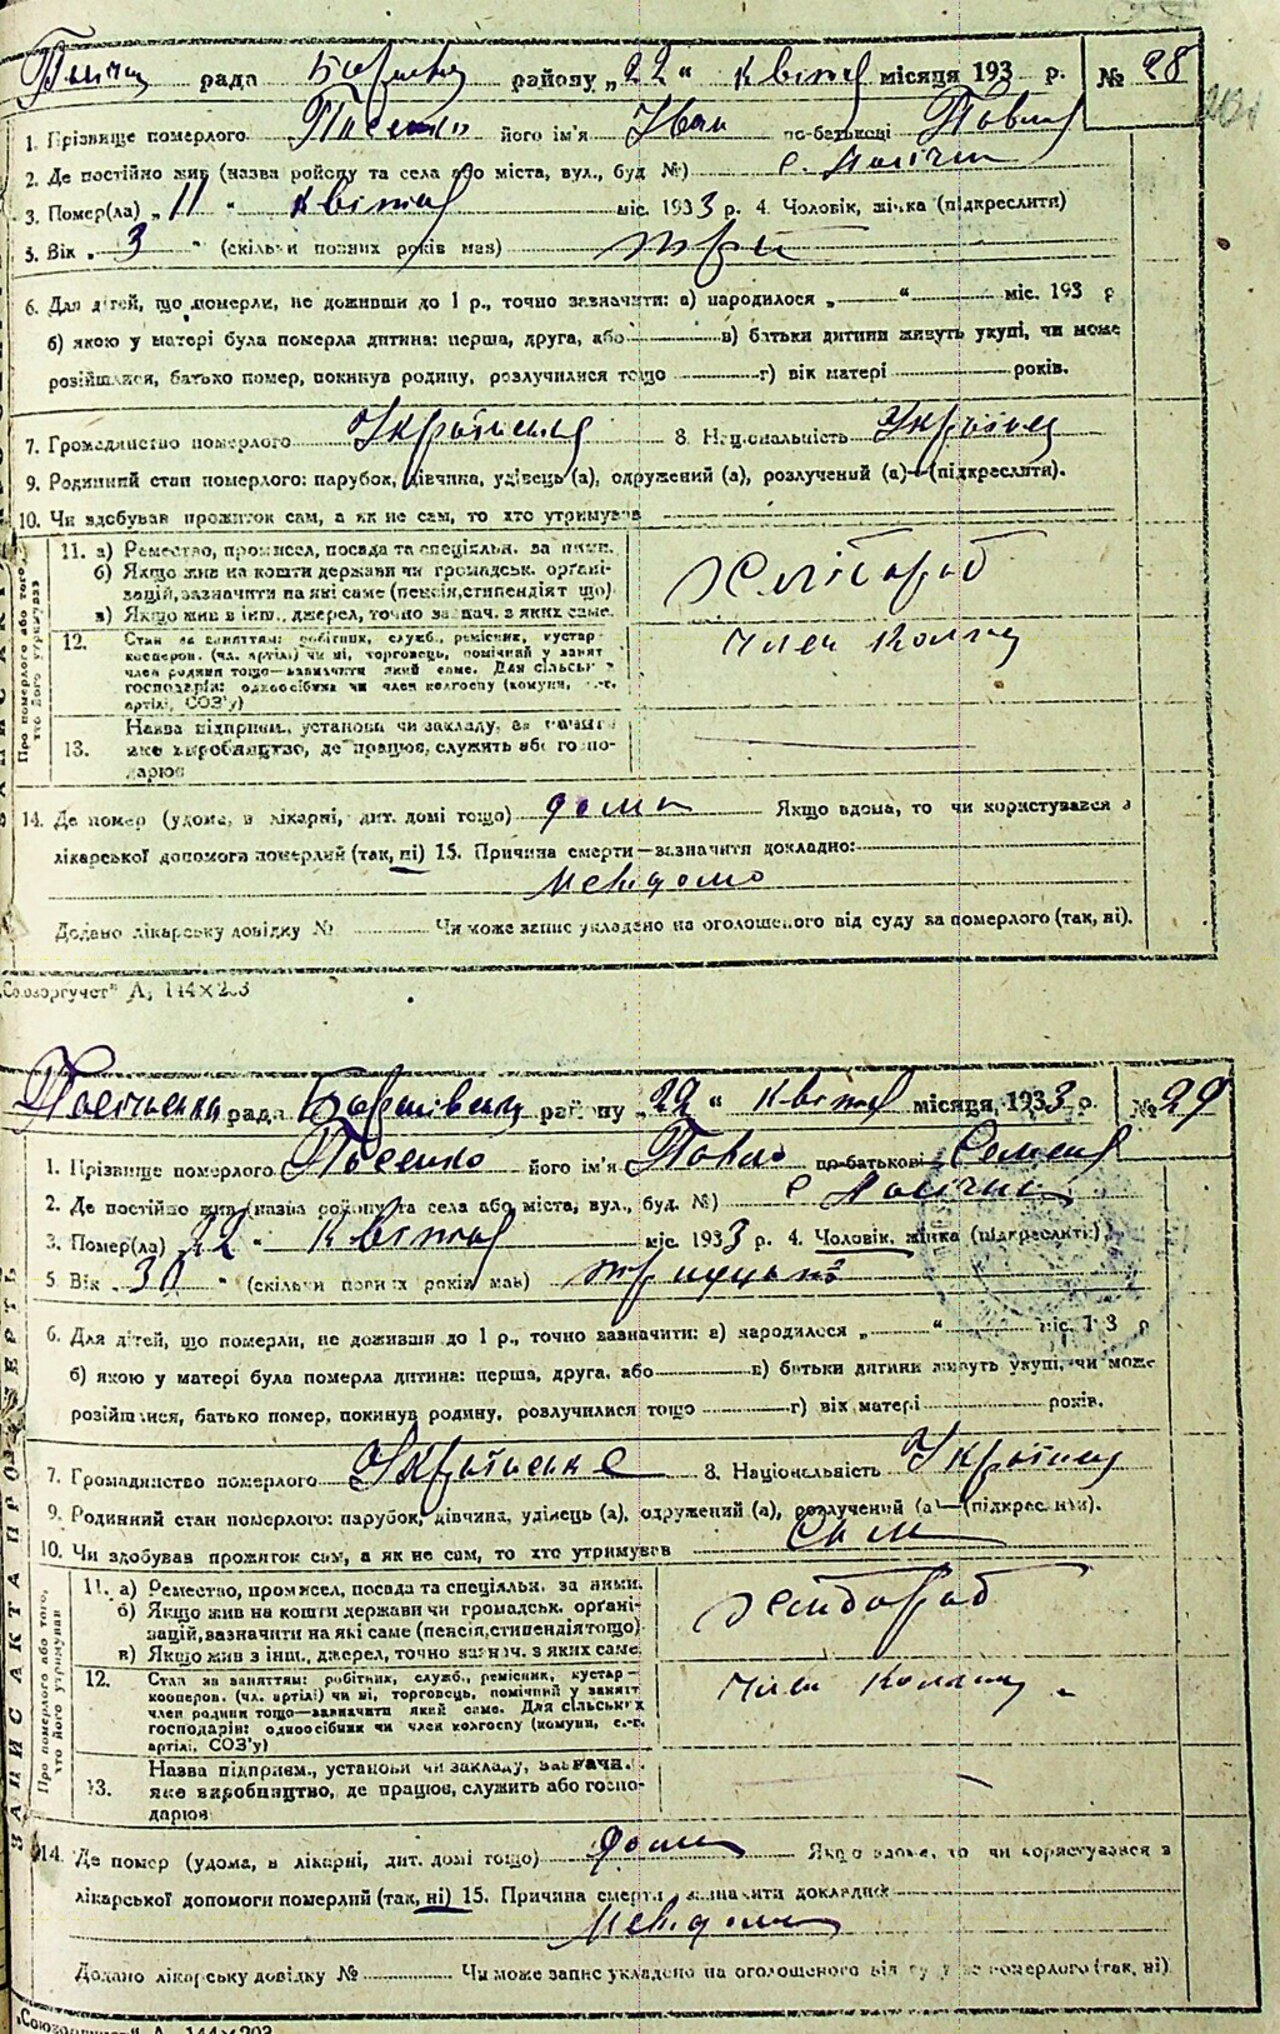 рада району „22“ квітня місяця 193 р. № 28
1. Прізвище померлого його ім'я Іван по-батькові Павлов
2. Де постійно жив (назва району та села або міста, вул., буд №) с.
3. Помер(ла) „11“ квітня міс. 1933 р. 4. Чоловік, жінка (підкреслити)
5. Вік „3“ (скільки повних років мав) три
6. Для дітей, що померли, не доживши до 1 р., точно зазначити: а) народилося „ “ міс. 193 р
б) якою у матері була померла дитина: перша, друга, або в) батьки дитини живуть укупі, чи може
розійшлися, батько помер, покинув родину, розлучилися тощо г) вік матері років.
7. Громадянство померлого 8. Національність
9. Родинний стан померлого: парубок, дівчина, удівець (а), одружений (а), розлучений (а)—(підкреслити).
10. Чи здобував прожиток сам, а як не сам, то хто утримував
Про померлого або того, хто його утримував
11. а) Ремество, промисел, посада та спеціяльн. за ними.
б) Якщо жив на кошти держави чи громадськ. організацій, зазначити на які саме (пенсія, стипендіят що)
в) Якщо жив в інш., джерел, точно зазнач. з яких саме.
Хлібороб
12. Стан за заняттям: робітник, служб., ремісник, кустар-
кооперов. (чл. артілі) чи ні, торговець, помічний у занят
член родини тощо—зазначити який саме. Для сільськ
господарів: одноосібник чи член колгоспу (комуни, с.-г.
артілі, СОЗ'у)
член
13. Назва підприєм., установи чи закладу, зазначити
яке виробництво, де працює, служить або госпо-
дарює
14. Де помер (удома, в лікарні, дит. домі тощо) дома Якщо вдома, то чи користувався з
лікарської допомоги померлий (так, ні) 15. Причина смерти—зазначити докладно:
невідомо
Додано лікарську довідку № Чи може запис укладено на оголошеного від суду за померлого (так, ні).
„Союзоргучет“ А, 144×203
рада району „22“ квітня місяця, 1933 р. № 29
1. Прізвище померлого його ім'я Павло по-батькові Семенов
2. Де постійно жив (назва району та села або міста, вул., буд. №) с
3. Помер(ла) „22“ квітня міс. 1933 р. 4. Чоловік, жінка (підкреслити)
5 Вік 30 “ (скільки повних років мав) тридцять
6. Для дітей, що померли, не доживши до 1 р., точно зазначити: а) народилося „ “ міс. 193 р
б) якою у матері була померла дитина: перша, друга, або в) батьки дитини живуть укупі, чи може
розійшлися, батько помер, покинув родину, розлучилися тощо г) вік матері років.
7. Громадянство померлого Українське 8. Національність
9. Родинний стан померлого: парубок, дівчина, удівець (а), одружений (а), розлучений (а)—(підкреслити).
10. Чи здобував прожиток сам, а як не сам, то хто утримував Сам
ЗАПИС АКТА ПРО СМЕРТЬ
Про померлого або того, хто його утримував
11. а) Ремество, промисел, посада та спеціяльн. за ними.
б) Якщо жив на кошти держави чи громадськ. органі-
зацій, зазначити на які саме (пенсія, стипендія тощо)
в) Якщо жив з інш., джерел, точно зазнач. з яких саме.
12. Стан за заняттям: робітник, служб., ремісник, кустар—
кооперов. (чл. артілі) чи ні, торговець, помічний у занят
член родини тощо—зазначити який саме. Для сільських
господарів: одноосібник чи член колгоспу (комуни, с.-г.
артілі, СОЗ'у)
член
13. Назва підприєм., установи чи закладу, зазначи.
яке виробництво, де працює, служить або госпо-
дарює
14. Де помер (удома, в лікарні, дит. домі тощо) дома Якщо вдома, то чи користувався з
лікарської допомоги померлий (так, ні) 15. Причина смерти зазначити докладно
Додано лікарську довідку № Чи може запис укладено на оголошеного від суду за померлого (так, ні)
„Союзоргучет“ А, 144×203